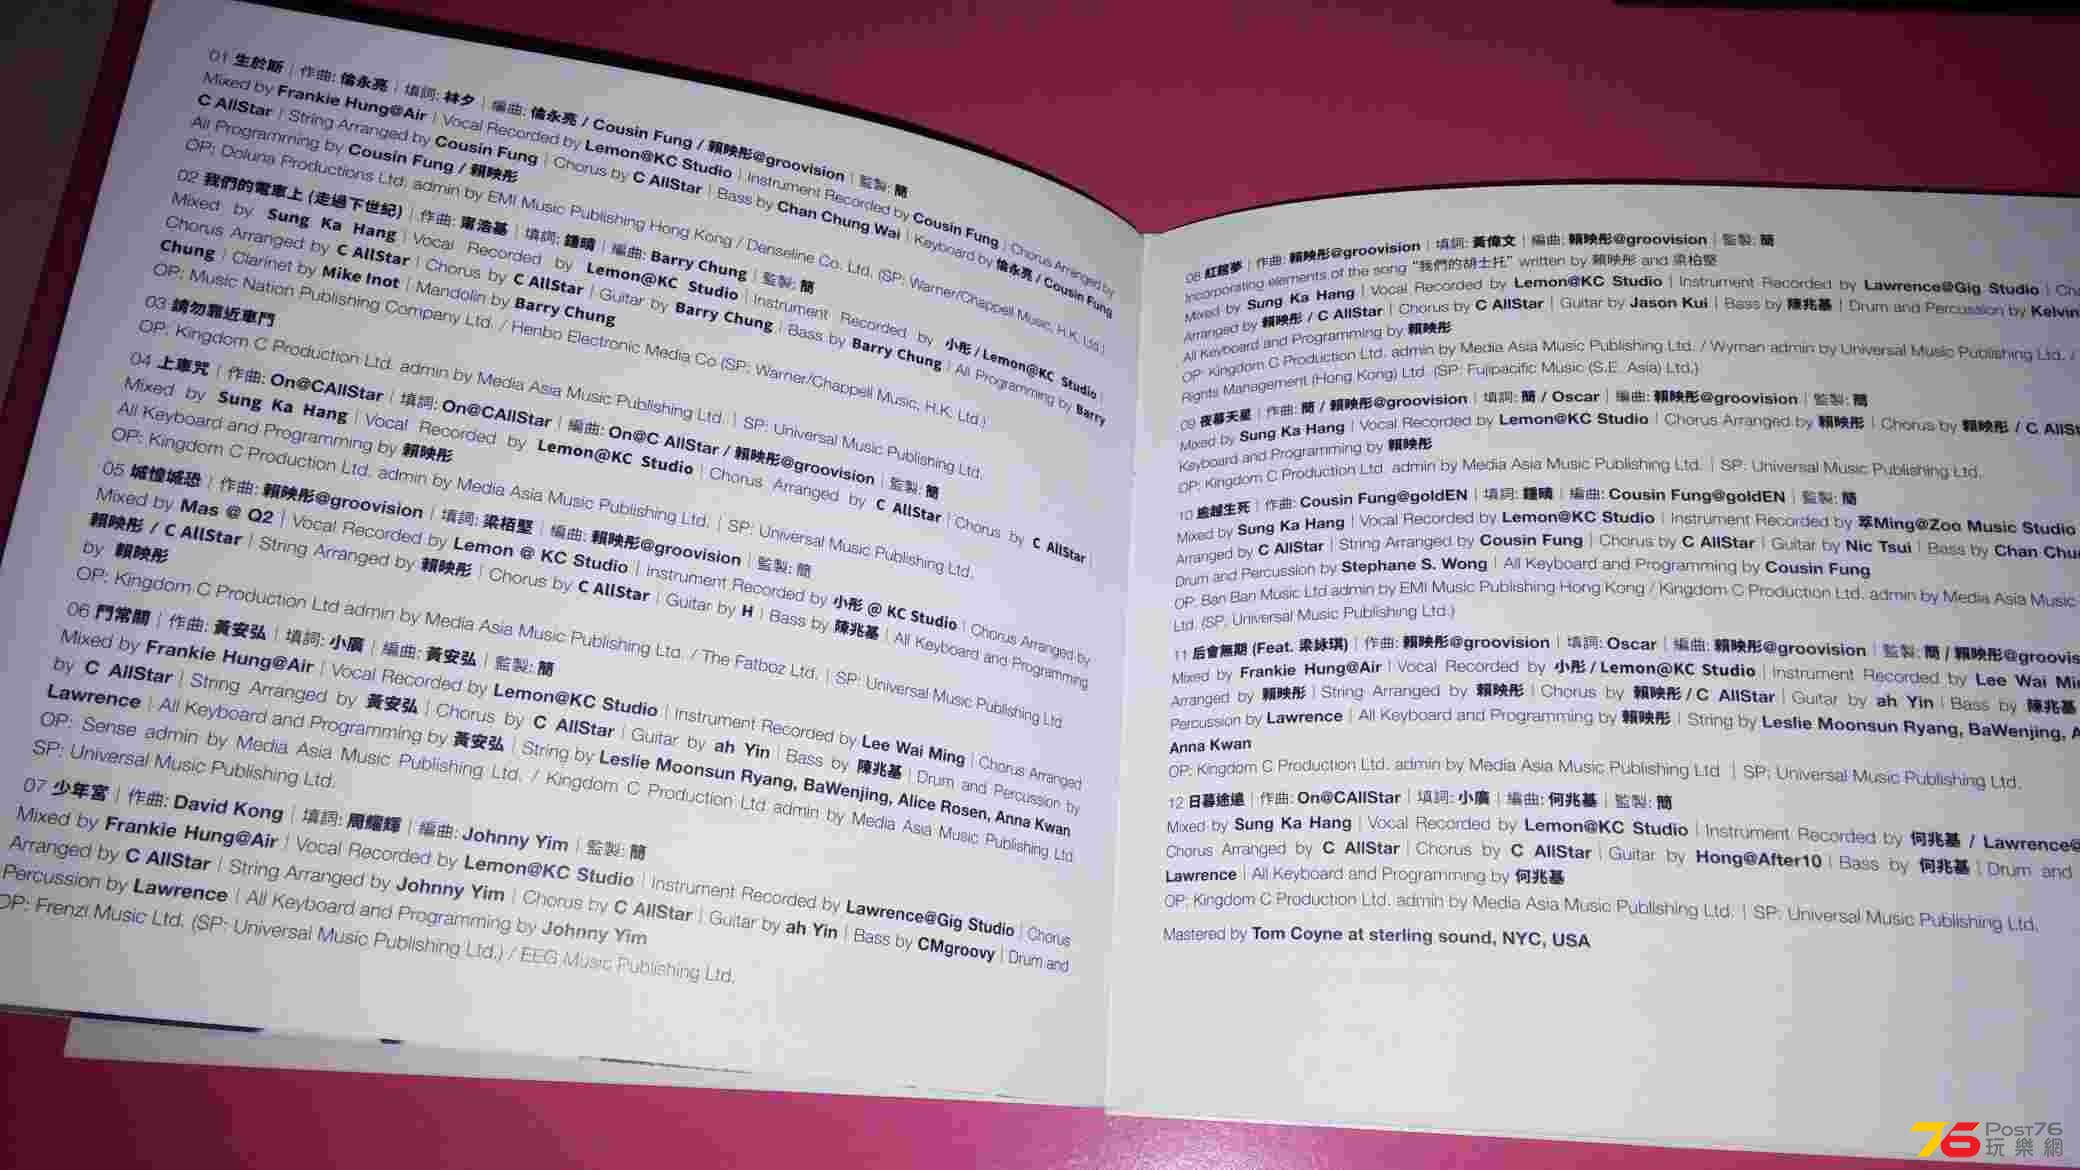 01 生於斯 | 作曲: 倫永亮 | 填詞: 林夕 | 編曲: 倫永亮 / Cousin Fung / 賴映彤@groovision | 監製: 簡
Mixed by Frankie Hung@Air | Vocal Recorded by Lemon@KC Studio | Instrument Recorded by Cousin Fung | Chorus Arranged by
C AllStar | String Arranged by Cousin Fung | Chorus by C AllStar | Bass by Chan Chung Wai | Keyboard by 倫永亮 / Cousin Fung
All Programming by Cousin Fung / 賴映彤
OP: Doluna Productions Ltd. admin by EMI Music Publishing Hong Kong / Denseline Co. Ltd. (SP: Warner/Chappell Music, H.K. Ltd.)
02 我們的電車上 (走過下世紀) | 作曲: 甯浩基 | 填詞: 鍾晴 | 編曲: Barry Chung | 監製: 簡
Mixed by Sung Ka Hang | Vocal Recorded by Lemon@KC Studio | Instrument Recorded by 小彤 / Lemon@KC Studio |
Chorus Arranged by C AllStar | Chorus by C AllStar | Guitar by Barry Chung | Bass by Barry Chung | All Programming by Barry
Chung | Clarinet by Mike Inot | Mandolin by Barry Chung
OP: Music Nation Publishing Company Ltd. / Henbo Electronic Media Co (SP: Warner/Chappell Music, H.K. Ltd.)
03 請勿靠近車門
OP: Kingdom C Production Ltd. admin by Media Asia Music Publishing Ltd. | SP: Universal Music Publishing Ltd.
04 上車咒 | 作曲: On@CAllStar | 填詞: On@CAllStar | 編曲: On@C AllStar / 賴映彤@groovision | 監製: 簡
Mixed by Sung Ka Hang | Vocal Recorded by Lemon@KC Studio | Chorus Arranged by C AllStar | Chorus by C AllStar |
All Keyboard and Programming by 賴映彤
OP: Kingdom C Production Ltd. admin by Media Asia Music Publishing Ltd. | SP: Universal Music Publishing Ltd.
05 城惶城恐 | 作曲: 賴映彤@groovision | 填詞: 梁栢堅 | 編曲: 賴映彤@groovision | 監製: 簡
Mixed by Mas @ Q2 | Vocal Recorded by Lemon @ KC Studio | Instrument Recorded by 小彤 @ KC Studio | Chorus Arranged by
賴映彤 / C AllStar | String Arranged by 賴映彤 | Chorus by C AllStar | Guitar by H | Bass by 陳兆基 | All Keyboard and Programming
by 賴映彤
OP: Kingdom C Production Ltd admin by Media Asia Music Publishing Ltd. / The Fatboz Ltd. | SP: Universal Music Publishing Ltd.
06 門常關 | 作曲: 黃安弘 | 填詞: 小廣 | 編曲: 黃安弘 | 監製: 簡
Mixed by Frankie Hung@Air | Vocal Recorded by Lemon@KC Studio | Instrument Recorded by Lee Wai Ming | Chorus Arranged
by C AllStar | String Arranged by 黃安弘 | Chorus by C AllStar | Guitar by ah Yin | Bass by 陳兆基 | Drum and Percussion by
Lawrence | All Keyboard and Programming by 黃安弘 | String by Leslie Moonsun Ryang, BaWenjing, Alice Rosen, Anna Kwan
OP: Sense admin by Media Asia Music Publishing Ltd. / Kingdom C Production Ltd admin by Media Asia Music Publishing Ltd
SP: Universal Music Publishing Ltd.
07 少年宮 | 作曲: David Kong | 填詞: 周耀輝 | 編曲: Johnny Yim | 監製: 簡
Mixed by Frankie Hung@Air | Vocal Recorded by Lemon@KC Studio | Instrument Recorded by Lawrence@Gig Studio | Chorus
Arranged by C AllStar | String Arranged by Johnny Yim | Chorus by C AllStar | Guitar by ah Yin | Bass by CMgroovy | Drum and
Percussion by Lawrence | All Keyboard and Programming by Johnny Yim
OP: Frenzi Music Ltd. (SP: Universal Music Publishing Ltd.) / EEG Music Publishing Ltd.
08 紅館夢 | 作曲: 賴映彤@groovision | 填詞: 黃偉文 | 編曲: 賴映彤@groovision | 監製: 簡
Incorporating elements of the song “我們的胡士托” written by 賴映彤 and 梁栢堅
Mixed by Sung Ka Hang | Vocal Recorded by Lemon@KC Studio | Instrument Recorded by Lawrence@Gig Studio |
Arranged by 賴映彤 / C AllStar | Chorus by C AllStar | Guitar by Jason Kui | Bass by 陳兆基 | Drum and Percussion by Kelvin
All Keyboard and Programming by 賴映彤
OP: Kingdom C Production Ltd. admin by Media Asia Music Publishing Ltd. / Wyman admin by Universal Music Publishing Ltd. /
Rights Management (Hong Kong) Ltd. (SP: Fujipacific Music (S.E. Asia) Ltd.)
09 夜幕天星 | 作曲: 簡 / 賴映彤@groovision | 填詞: 簡 / Oscar | 編曲: 賴映彤@groovision | 監製: 簡
Mixed by Sung Ka Hang | Vocal Recorded by Lemon@KC Studio | Chorus Arranged by 賴映彤 | Chorus by 賴映彤 / C AllSt
Keyboard and Programming by 賴映彤
OP: Kingdom C Production Ltd. admin by Media Asia Music Publishing Ltd. | SP: Universal Music Publishing Ltd.
10 逾越生死 | 作曲: Cousin Fung@goldEN | 填詞: 鍾晴 | 編曲: Cousin Fung@goldEN | 監製: 簡
Mixed by Sung Ka Hang | Vocal Recorded by Lemon@KC Studio | Instrument Recorded by 萃Ming@Zoo Music Studio
Arranged by C AllStar | String Arranged by Cousin Fung | Chorus by C AllStar | Guitar by Nic Tsui | Bass by Chan Chu
Drum and Percussion by Stephane S. Wong | All Keyboard and Programming by Cousin Fung
OP: Ban Ban Music Ltd admin by EMI Music Publishing Hong Kong / Kingdom C Production Ltd. admin by Media Asia Music
Ltd. (SP: Universal Music Publishing Ltd.)
11 后會無期 (Feat. 梁詠琪) | 作曲: 賴映彤@groovision | 填詞: Oscar | 編曲: 賴映彤@groovision | 監製: 簡 / 賴映彤@groovis
Mixed by Frankie Hung@Air | Vocal Recorded by 小彤 / Lemon@KC Studio | Instrument Recorded by Lee Wai Min
Arranged by 賴映彤 | String Arranged by 賴映彤 | Chorus by 賴映彤 / C AllStar | Guitar by ah Yin | Bass by 陳兆基
Percussion by Lawrence | All Keyboard and Programming by 賴映彤 | String by Leslie Moonsun Ryang, BaWenjing, A
Anna Kwan
OP: Kingdom C Production Ltd. admin by Media Asia Music Publishing Ltd | SP: Universal Music Publishing Ltd.
12 日暮途遠 | 作曲: On@CAllStar | 填詞: 小廣 | 編曲: 何兆基 | 監製: 簡
Mixed by Sung Ka Hang | Vocal Recorded by Lemon@KC Studio | Instrument Recorded by 何兆基 / Lawrence@
Chorus Arranged by C AllStar | Chorus by C AllStar | Guitar by Hong@After10 | Bass by 何兆基 | Drum and
Lawrence | All Keyboard and Programming by 何兆基
OP: Kingdom C Production Ltd. admin by Media Asia Music Publishing Ltd. | SP: Universal Music Publishing Ltd.
Mastered by Tom Coyne at sterling sound, NYC, USA
76 POST76
玩樂網